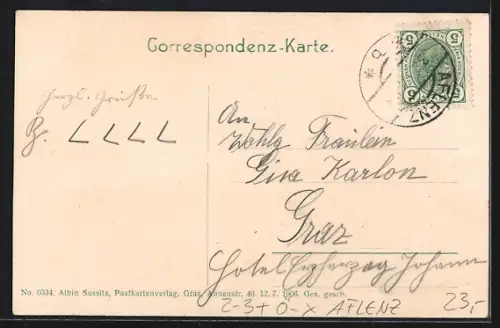 Correspondenz-Karte.
5 5
AFLENZ
herzl. Grüße
An
Wohlg Fräulein
Gisa Karlon
Graz
Hotel Erzherzog Johann
No. 6334. Albin Sussitz, Postkartenverlag, Graz, Annenstr. 46 12. 7. 1906. Ges. gesch.
2-3+ 0-X AFLENZ 23,-